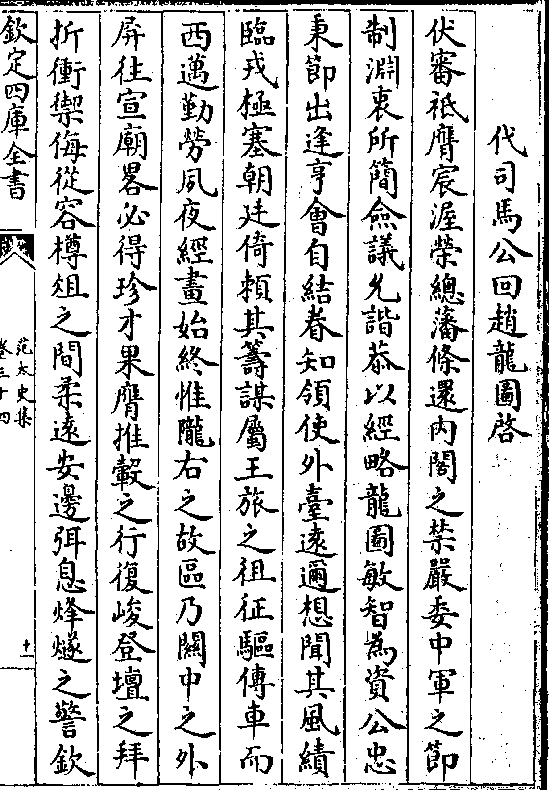 代司馬公回趙龍圖啓
伏審祇膺宸渥榮總藩條還内閣之禁嚴委中軍之節
制淵衷所簡僉議允諧恭以經略龍圖敏智為資公忠
秉節出逢亨會自結眷知領使外臺遠邇想聞其風績
臨戎極塞朝廷倚賴其籌謀屬王旅之徂征驅傳車而
西邁勤勞夙夜經畫始終惟隴右之故區乃關中之外
屏往宣廟畧必得珍才果膺推轂之行復峻登壇之拜
折衝禦侮從容樽俎之間柔遠安邊弭息烽燧之警欽
欽定四庫全書
范太史集
卷三十四
十一